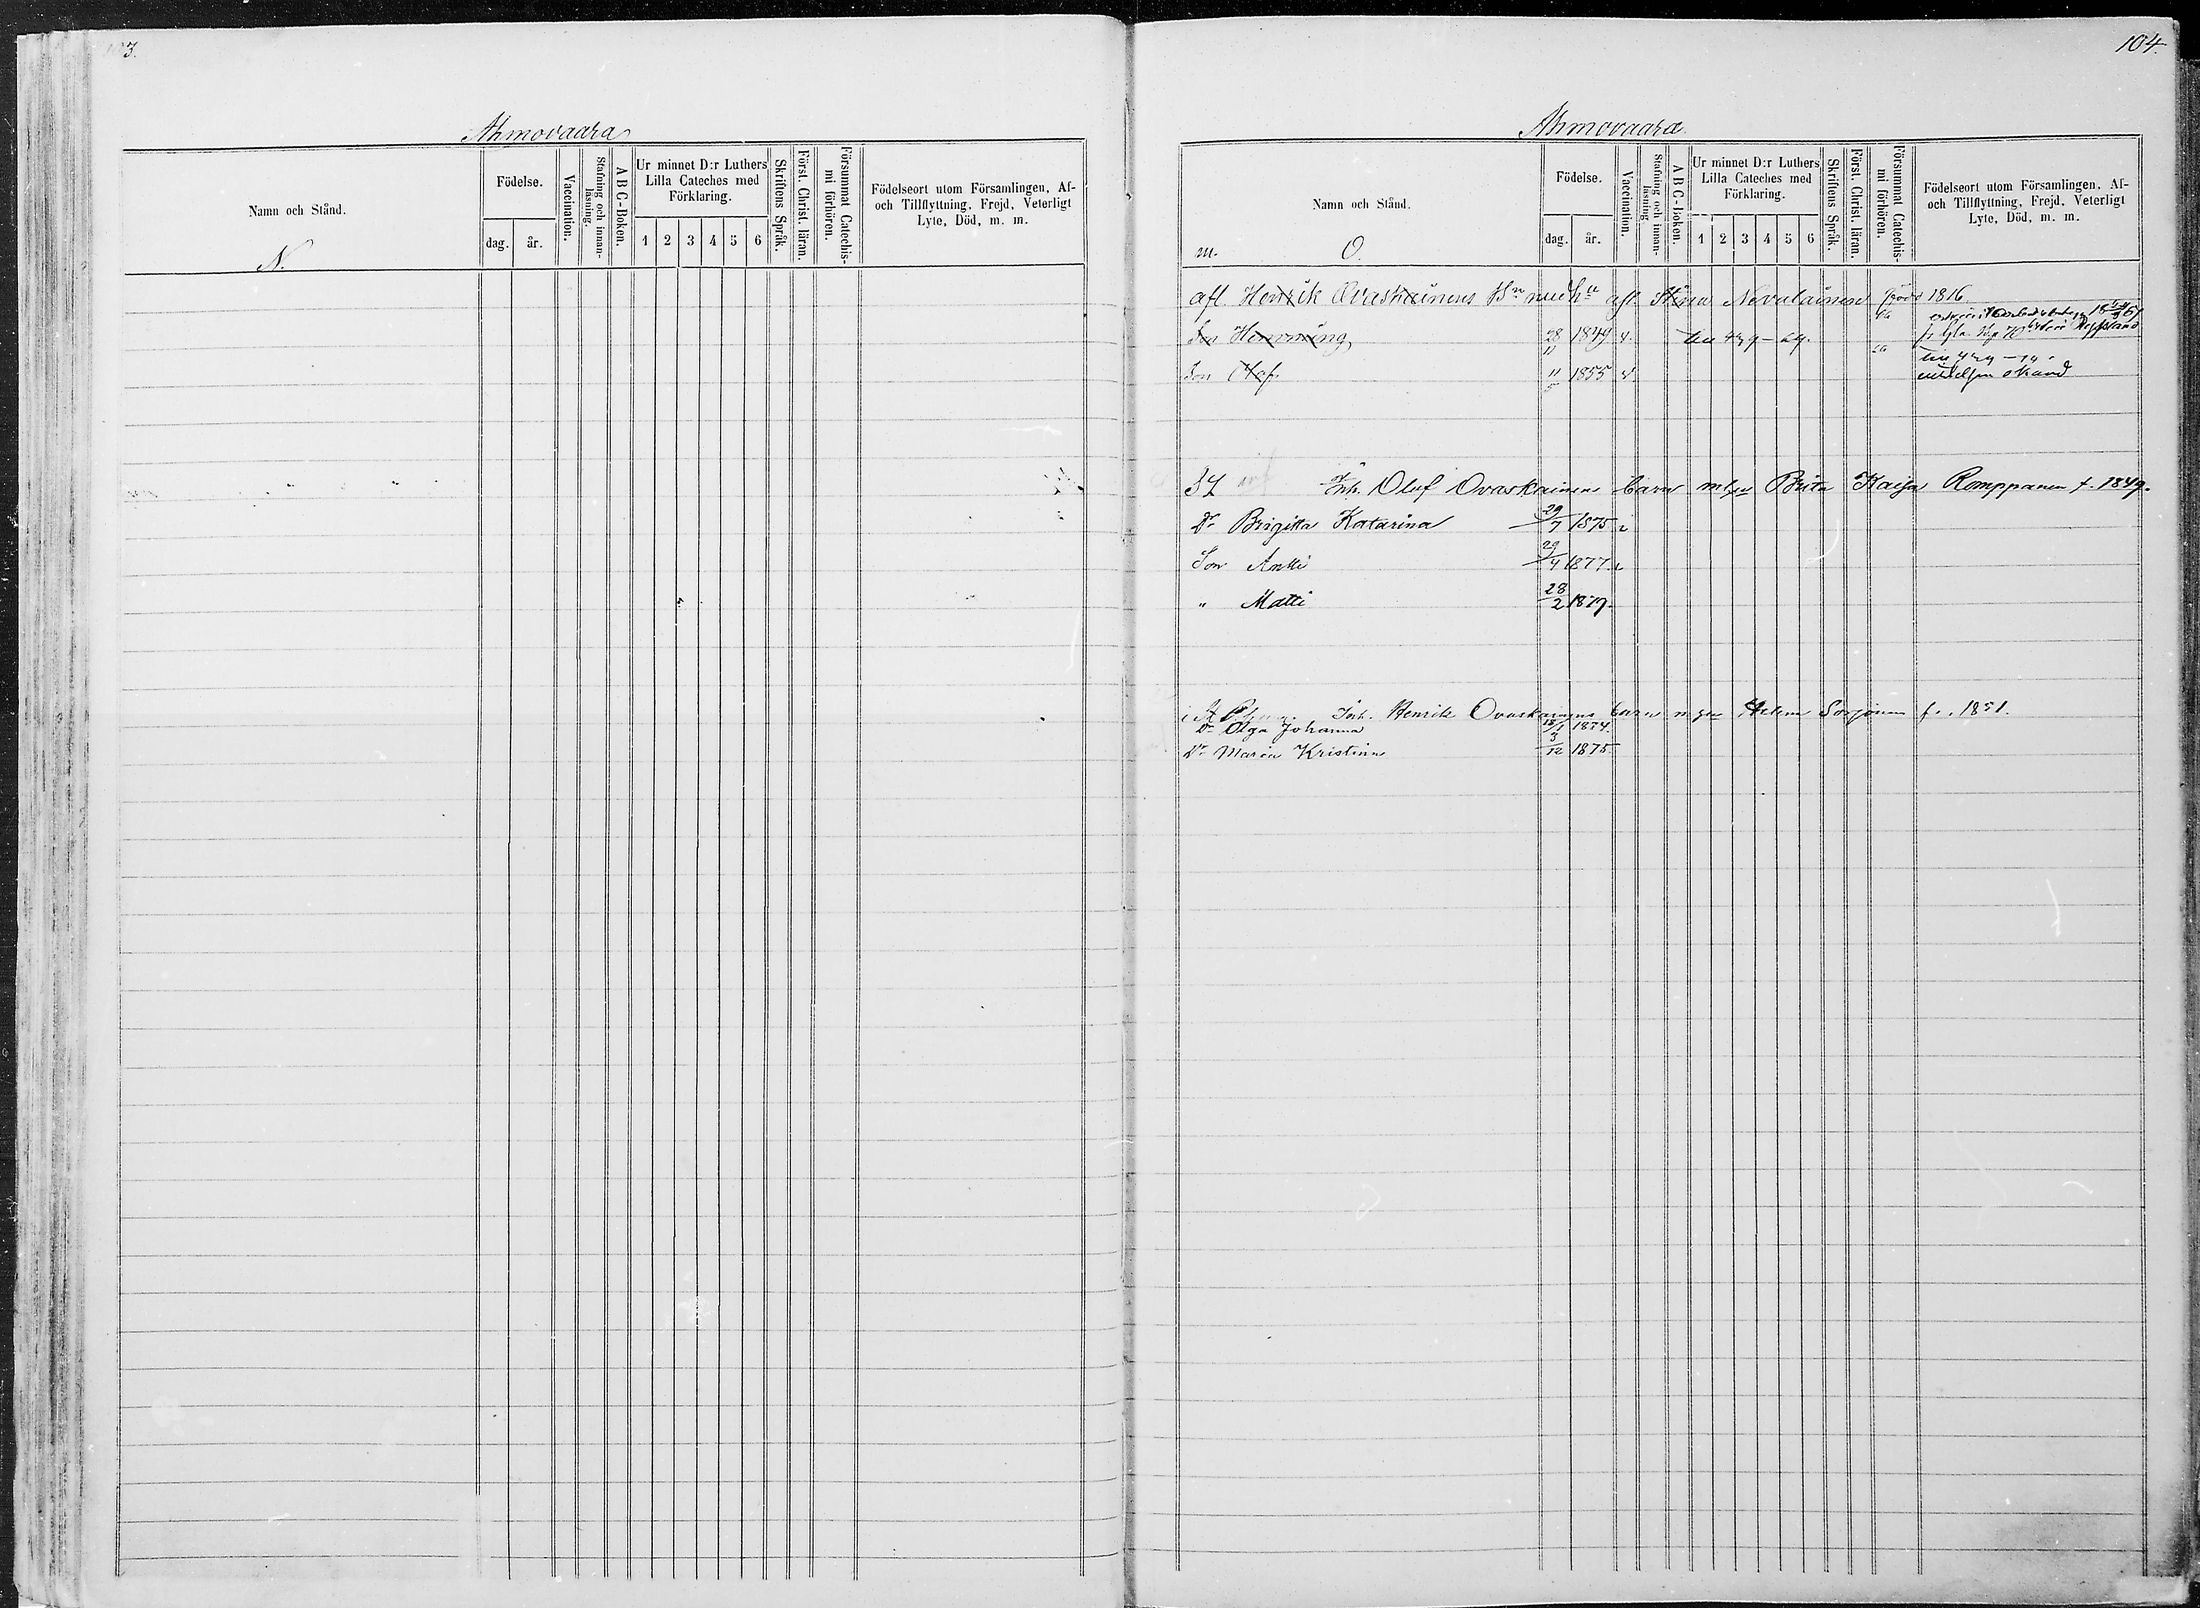 3.
Ahmovaara
Namn och Stånd.
N.
Födelse.
dag. år.
Vaccination.
Stafning och innan-läsning.
A B C-Boken.
Ur minnet D:r Luthers
Lilla Cateches med
Förklaring.
1 2 3 4 5 6
Skriftens Språk.
Först. Christ. läran.
Försummat Catechis-mi förhören.
Födelseort utom Församlingen, Af-
och Tillflyttning, Frejd, Veterligt
Lyte, Död, m. m.
104.
Ahmovaara
Namn och Stånd.
m. O.
Födelse.
dag. år.
Vaccination.
Stafning och innan-läsning
A B C-Boken.
Ur minnet D:r Luthers
Lilla Cateches med
Förklaring.
1 2 3 4 5 6
Skriftens Språk.
Först. Christ. läran.
Försummat Catechis-mi förhören.
Födelseort utom Församlingen, Af-
och Tillflyttning, Frejd, Veterligt
Lyte, Död, m. m.
afl. Henrik Ovaskainens Bn med hu afl. Stina Nevalainen född 1816
Son Hemming 28/11 1849 v.
Son Olof 11/5 1855 v
34 Inh. Olof Ovaskainens barn m hu Brita Kaisa Romppanen f. 1849.
Dr Brigitta Katarina 29/7 1875 v
Son Antti 29/4 1877. v
" Matti 28/2 1879.
Inh. Henrik Ovaskainens barn m hu Helena Sorjonen f. 1851.
Dr Olga Johanna 1874.
Dr Maria Kristina 3/12 1875.